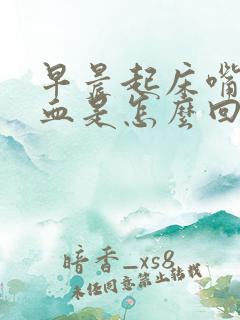 早晨起床嘴
血是怎麼回
暗香_xs8
未经同意禁止转载